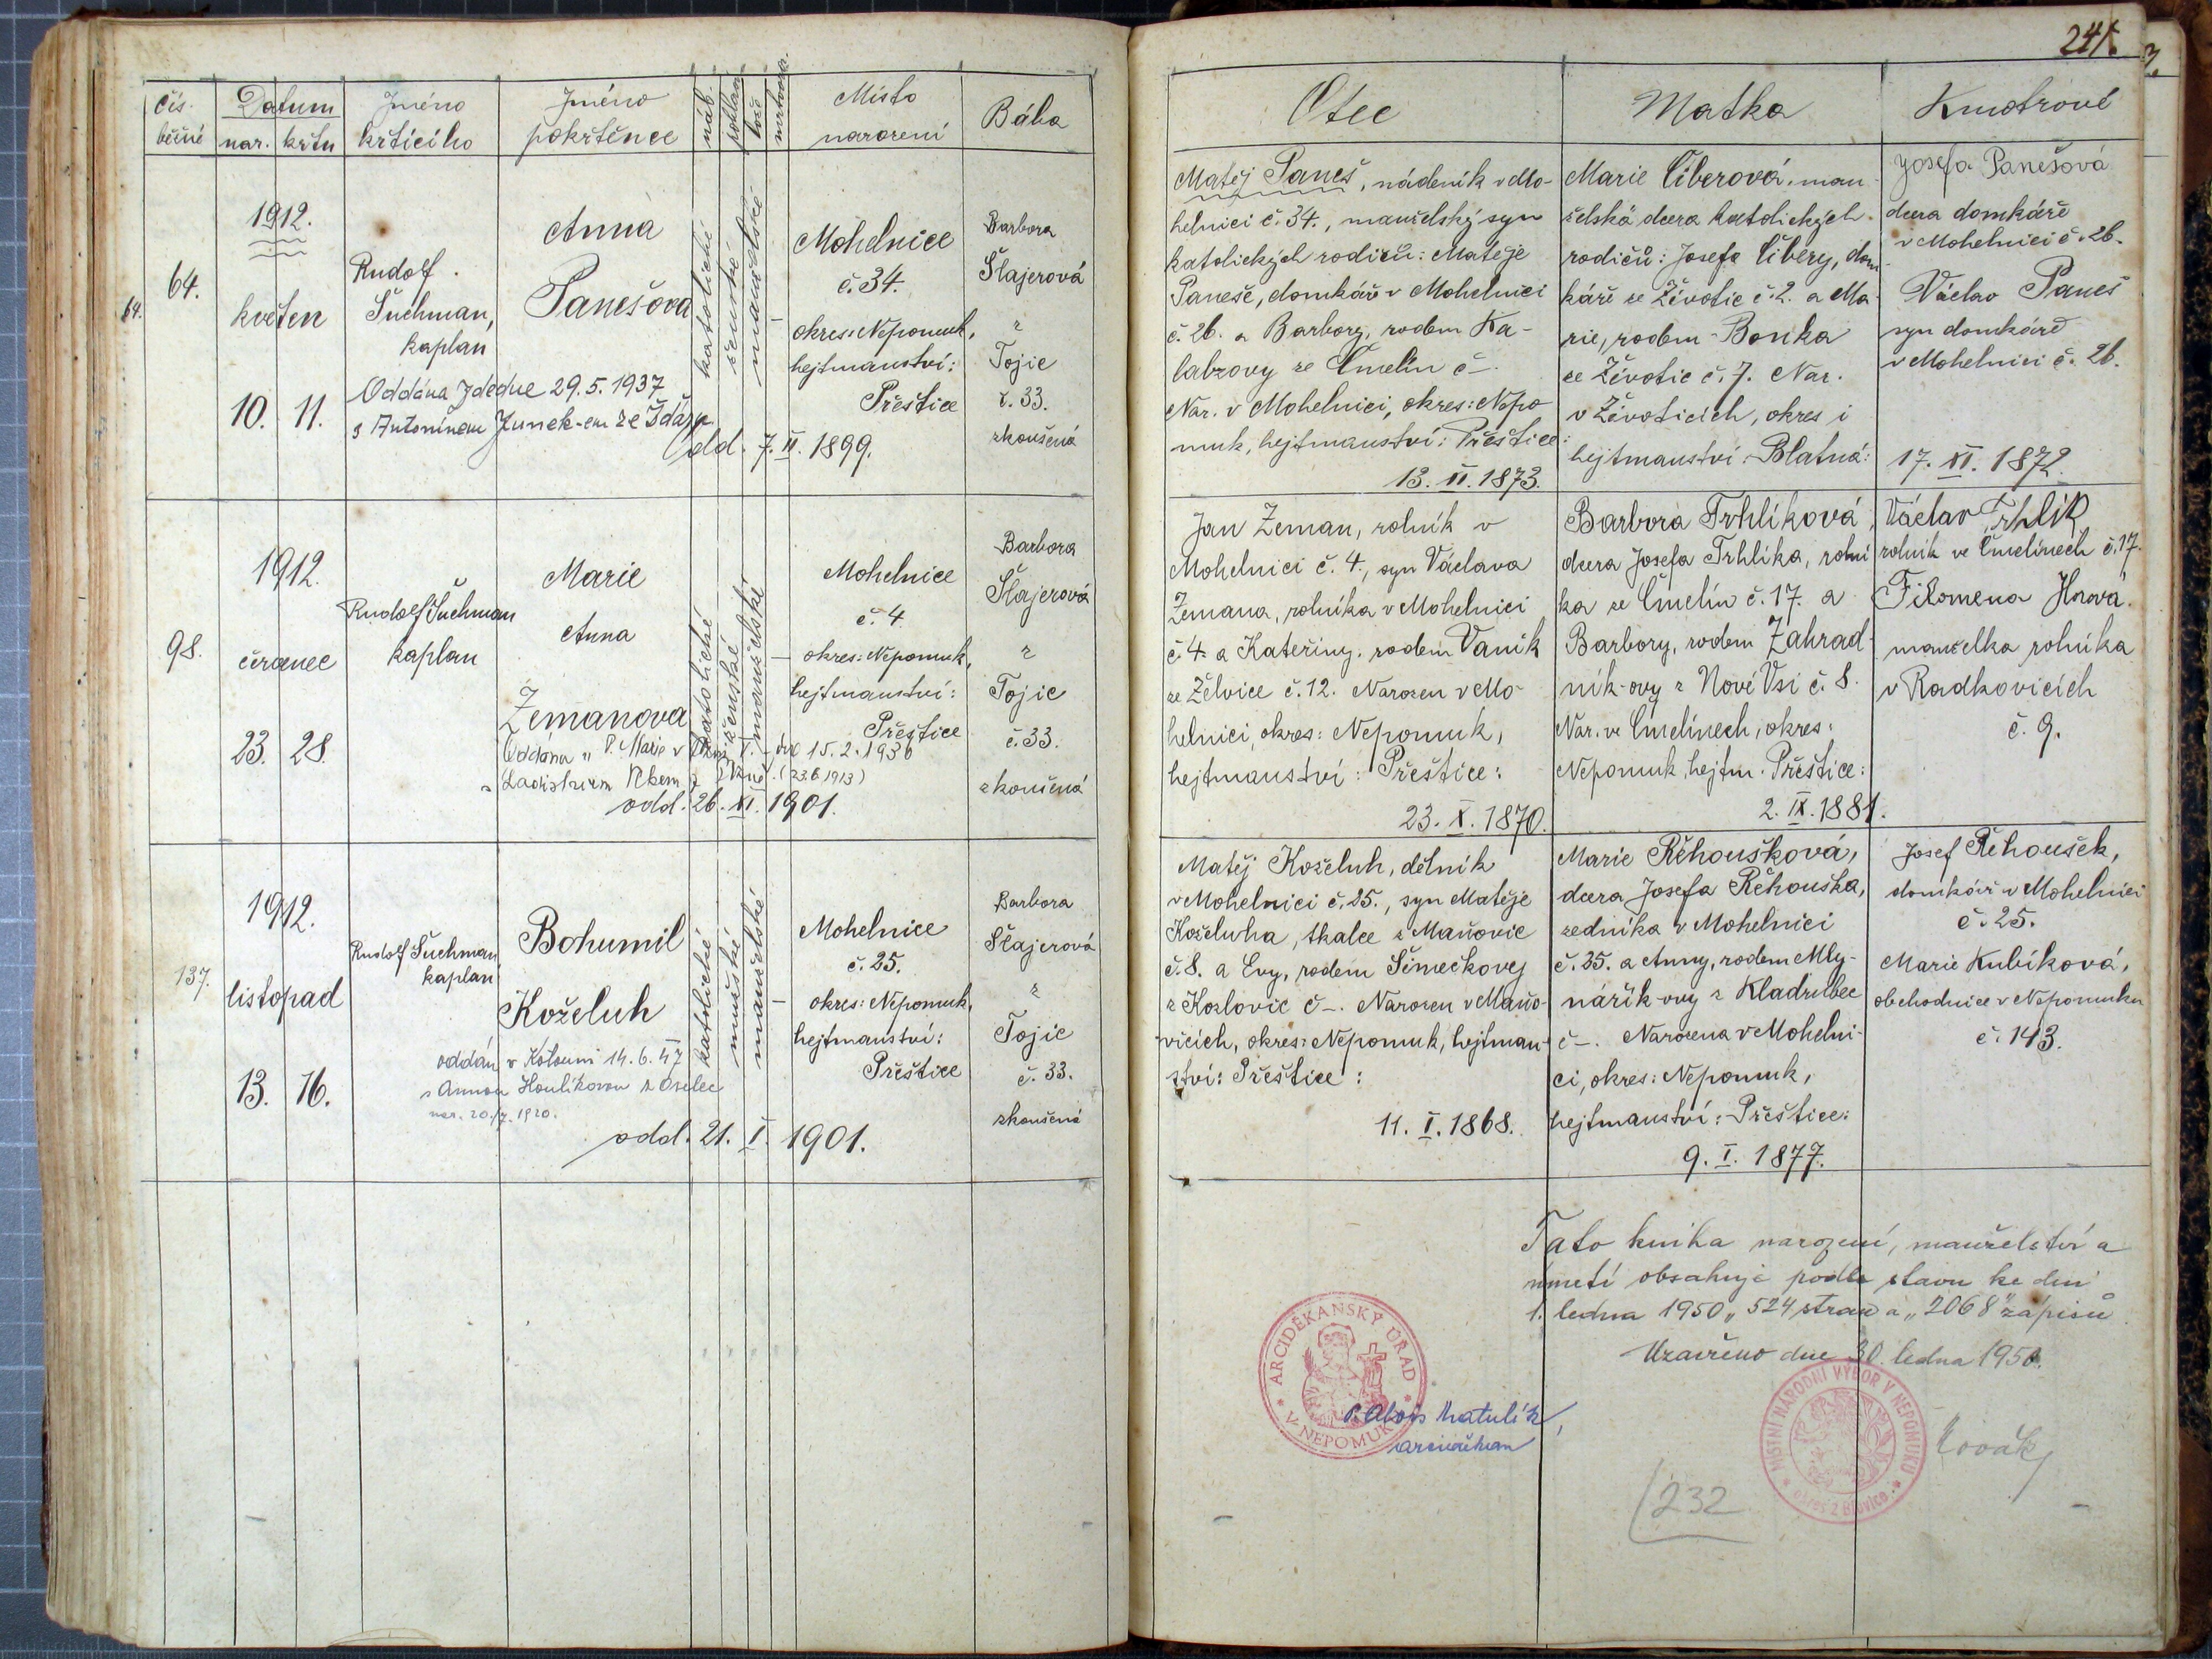 241.
3.
čís. běžné
Datum
nar. křtu
Jméno křtícího
Jméno pokřtěnce
náb.
pohlaví
lože
mrtvorozené
Místo narození
Bába
Otec
Matka
Kmotrové
64.
64.
1912.
květen
10. 11.
Rudolf
Suchman,
kaplan
Anna
Panešova
katolické
ženské
manželské
Mohelnice
č. 34.
okres: Nepomuk,
hejtmanství:
Přeštice
Barbora
Šlajerová
z
Tojic
č. 33.
zkoušená
Oddána zde dne 29.5.1937
s Antonínem Junek-em ze Ždáru
odd. 7. II. 1899.
Matěj Paneš, nádeník v Mo-
helnici č. 34., manželský syn
katolických rodičů: Matěje
Paneše, domkáře v Mohelnici
č. 26. a Barbory, rodem Ka-
labzovy ze Čmelín č –.
Nar. v Mohelnici, okres: Nepo
muk, hejtmanství: Přeštice:
13. II. 1873.
Marie Čiberová, man-
želská dcera katolických
rodičů: Josefa Čibery, dom
káře ze Životic č. 2. a Ma-
rie, rodem Bonka
ze Životic č. 7. Nar.
v Životicích, okres i
hejtmanství: Blatná:
17. XI. 1872.
Josefa Panešová
dcera domkáře
v Mohelnici č. 26.
Václav Paneš
syn domkáře
v Mohelnici č. 26.
98.
1912.
červenec
23. 28.
Rudolf Suchman
kaplan
Marie
Anna
Zemanova
katolické
ženské
manželské
Mohelnice
č. 4
okres: Nepomuk,
hejtmanství:
Přeštice
Barbora
Šlajerová
z
Tojic
č. 33.
zkoušená
Oddána u P. Marie v dne 15.2.1936
s Ladislavem (23.6.1913)
odd. 26. XI. 1901.
Jan Zeman, rolník v
Mohelnici č. 4., syn Václava
Zemana, rolníka v Mohelnici
č. 4 a Kateřiny, rodem Vaník
ze Želvice č. 12. Narozen v Mo-
helnici, okres: Nepomuk,
hejtmanství: Přeštice:
23. X. 1870.
Barbora Trhlíková,
dcera Josefa Trhlíka, rolní
ka ze Čmelín č. 17. a
Barbory, rodem Zahrad-
ník-ovy z Nové Vsi č. 8.
Nar. ve Čmelínech, okres:
Nepomuk, hejtm. Přeštice:
2. IX. 1881.
Václav Trhlík
rolník ve Čmelínech č. 17.
Filomena
manželka rolníka
v Radkovicích
č. 9.
137.
1912.
listopad
13. 16.
Rudolf Suchman
kaplan
Bohumil
Koželuh
katolické
mužské
manželské
Mohelnice
č. 25.
okres: Nepomuk,
hejtmanství:
Přeštice
Barbora
Šlajerová
z
Tojic
č. 33.
zkoušená
oddán v Kotouni 14.6.47
s Annou Houlíkovou z Oselec
nar. 20./7. 1920.
odd. 21. I. 1901.
Matěj Koželuh, dělník
v Mohelnici č. 25., syn Matěje
Koželuha, tkalce z Maňovic
č. 8. a Evy, rodem Šimečkovej
z Kozlovic č –. Narozen v Maňo-
vicích, okres: Nepomuk, hejtman-
ství: Přeštice:
11. I. 1868.
Marie Řehoušková,
dcera Josefa Řehouška,
zedníka v Mohelnici
č. 25. a Anny, rodem Mly-
nářík-ovy z Kladrubec
č –. Narozena v Mohelni-
ci, okres: Nepomuk,
hejtmanství: Přeštice:
9. I. 1877.
Josef Řehoušek,
domkář v Mohelnici
č. 25.
Marie Kubíková,
obchodnice v Nepomuku
č. 143.
Tato kniha narození, manželství a
úmrtí obsahuje podle stavu ke dni
1. ledna 1950 „524 stran a „2068" zápisů
Uzavřeno dne 30. ledna 1950.
ARCIDĚKANSKÝ ÚŘAD V NEPOMUKU
P. Alois Matulík,
arciděkan
MÍSTNÍ NÁRODNÍ VÝBOR V NEPOMUKU
okres Blovice
232